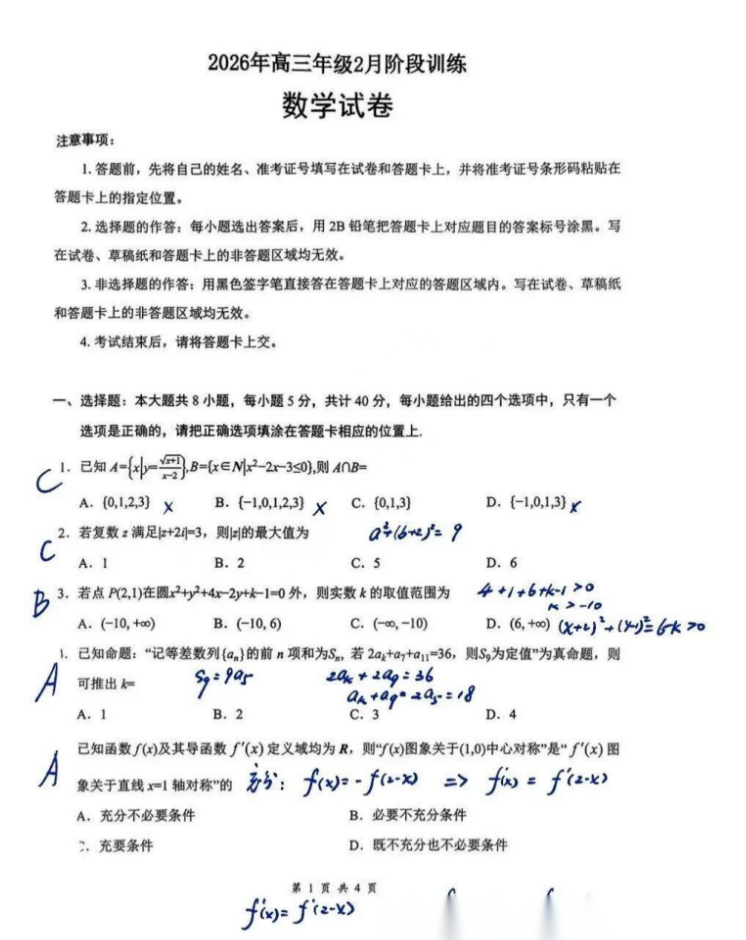 2026年高三年级2月阶段训练
数学试卷
注意事项：
1. 答题前，先将自己的姓名、准考证号填写在试卷和答题卡上，并将准考证号条形码粘贴在
答题卡上的指定位置。
2. 选择题的作答：每小题选出答案后，用 2B 铅笔把答题卡上对应题目的答案标号涂黑。写
在试卷、草稿纸和答题卡上的非答题区域均无效。
3. 非选择题的作答：用黑色签字笔直接答在答题卡上对应的答题区域内。写在试卷、草稿纸
和答题卡上的非答题区域均无效。
4. 考试结束后，请将答题卡上交。
一、选择题：本大题共 8 小题，每小题 5 分，共计 40 分，每小题给出的四个选项中，只有一个
选项是正确的，请把正确选项填涂在答题卡相应的位置上.
C 1. 已知 A={x|y=√(x+1)/(x-2)},B={x∈N|x²-2x-3≤0},则 A∩B=
A. {0,1,2,3} × B. {-1,0,1,2,3} × C. {0,1,3} D. {-1,0,1,3} ×
C 2. 若复数 z 满足|z+2i|=3，则|z|的最大值为 a²+(b+2)²=9
A. 1 B. 2 C. 5 D. 6
B 3. 若点 P(2,1)在圆x²+y²+4x-2y+k-1=0 外，则实数 k 的取值范围为 4+1+6+k-1>0
k>-10
A. (-10, +∞) B. (-10, 6) C. (-∞, -10) D. (6, +∞) (x+2)²+(y-1)²=6-k>0
已知命题：“记等差数列{aₙ}的前 n 项和为Sₙ, 若 2aₖ+a₇+a₁₁=36，则S₉为定值”为真命题，则
A 可推出 k= S₉=9a₅ 2aₖ+2a₉=36
aₖ+a₉=2a₅=18
A. 1 B. 2 C. 3 D. 4
已知函数 f(x)及其导函数 f′(x) 定义域均为 R，则“f(x)图象关于(1,0)中心对称”是“ f′(x) 图
A 象关于直线 x=1 轴对称”的 充分: f(x)=-f(2-x) => f′(x)=f′(2-x)
A. 充分不必要条件 B. 必要不充分条件
C. 充要条件 D. 既不充分也不必要条件
第 1 页 共 4 页
f′(x)=f′(2-x)